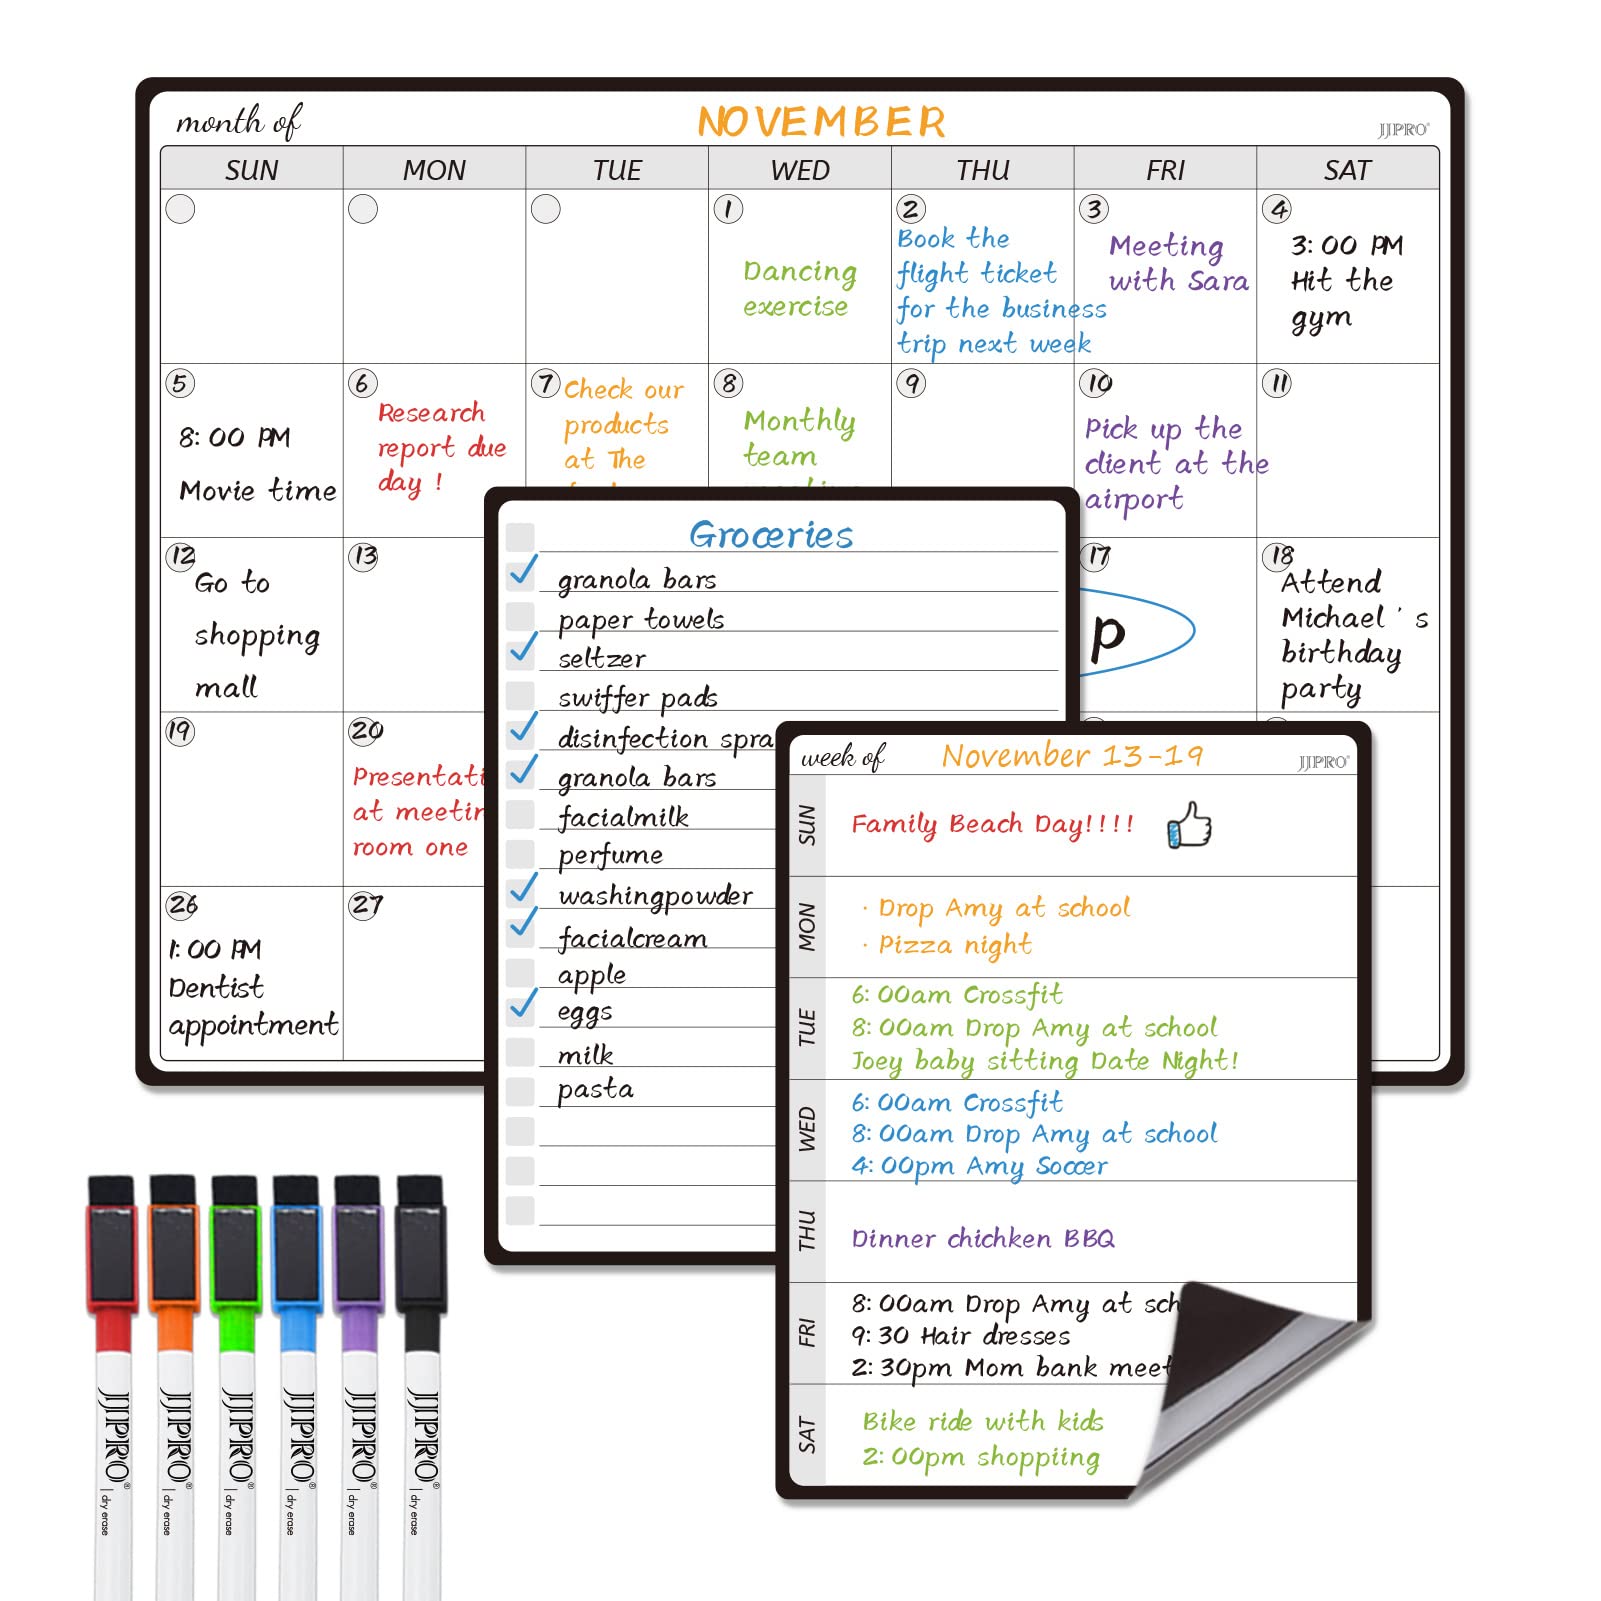 month of NOVEMBER JJPRO®
SUN MON TUE WED THU FRI SAT
1
Dancing
exercise
2
Book the
flight ticket
for the business
trip next week
3
Meeting
with Sara
4
3:00 PM
Hit the
gym
5
8:00 PM
Movie time
6
Research
report due
day !
7
Check our
products
at The
8
Monthly
team
9
10
Pick up the
client at the
airport
11
12
Go to
shopping
mall
13
17
p
18
Attend
Michael's
birthday
party
19
20
Presentati
at meetin
room one
26
1:00 PM
Dentist
appointment
27
Groceries
granola bars
paper towels
seltzer
swiffer pads
disinfection spra
granola bars
facialmilk
perfume
washingpowder
facialcream
apple
eggs
milk
pasta
week of November 13-19 JJPRO®
SUN
Family Beach Day!!!!
MON
· Drop Amy at school
· Pizza night
TUE
6:00am Crossfit
8:00am Drop Amy at school
Joey baby sitting Date Night!
WED
6:00am Crossfit
8:00am Drop Amy at school
4:00pm Amy Soccer
THU
Dinner chichken BBQ
FRI
8:00am Drop Amy at sch
9:30 Hair dresses
2:30pm Mom bank meet
SAT
Bike ride with kids
2:00pm shoppiing
JJPRO® | dry erase
JJPRO® | dry erase
JJPRO® | dry erase
JJPRO® | dry erase
JJPRO® | dry erase
JJPRO® | dry erase